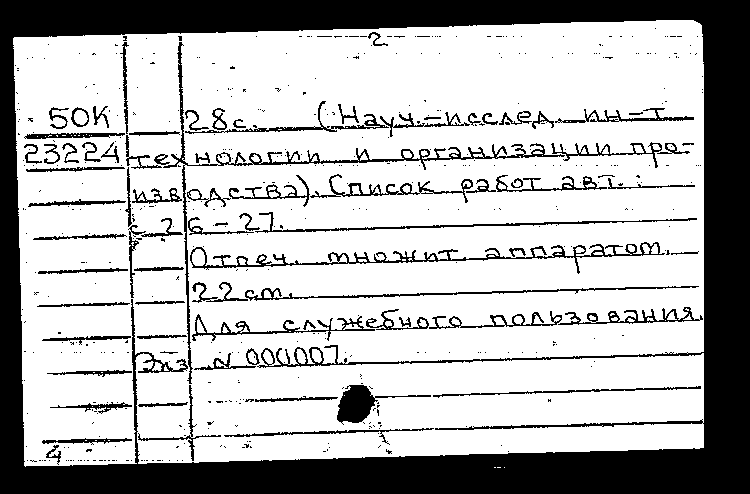 2
50К 28с. (Науч.-исслед. ин-т
23224 технологии и организации про-
изводства). Список работ авт.:
с. 26-27.
Отпеч. множит. аппаратом.
22 см.
Для служебного пользования.
Экз. N 000007.
4